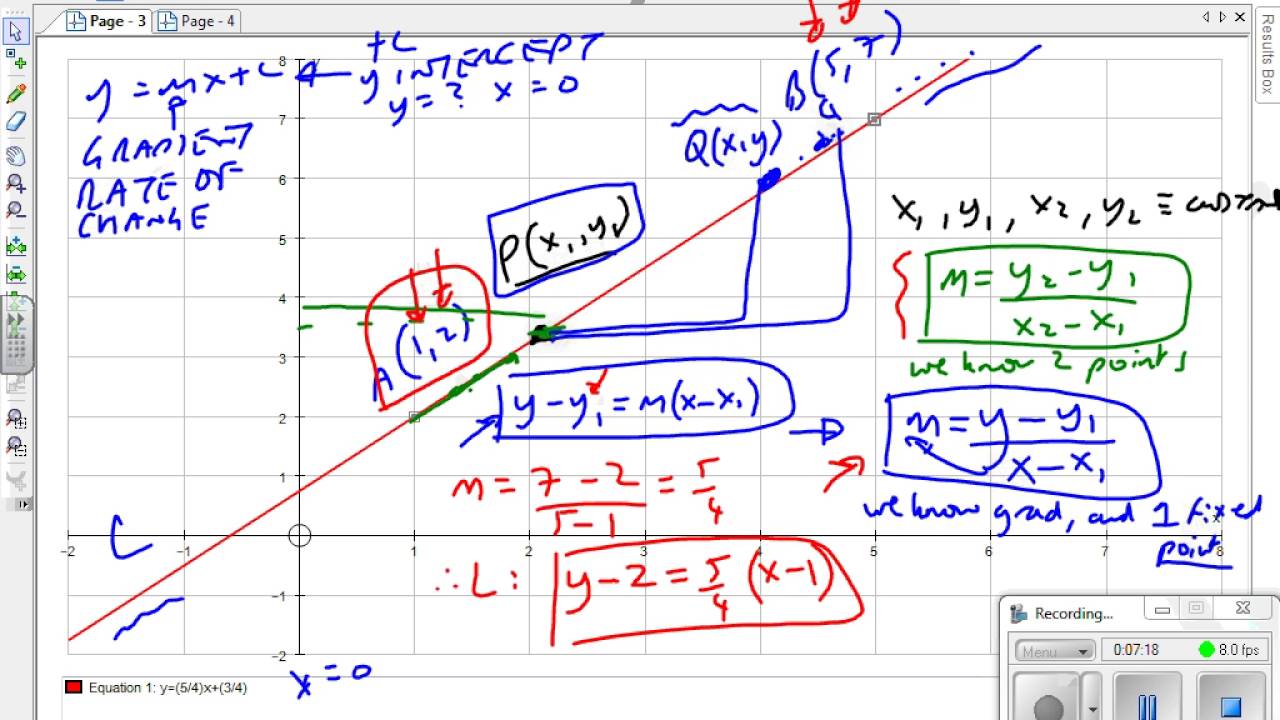 Page - 3
Page - 4
Results Box
+C
y = mx+c ← y INTERCEPT
y = ? x = 0
GRADIENT
RATE OF
CHANGE
B(5, 7)
Q(x, y)
P(x₁, y₁)
A(1, 2)
x₁, y₁, x₂, y₂ ≡
m = y₂ - y₁
x₂ - x₁
we know 2 points
y - y₁ = m(x - x₁)
m = y - y₁
x - x₁
we know grad, and 1 fixed
point
m = 7 - 2 = 5
5 - 1 4
∴ L: y - 2 = 5/4 (x - 1)
L
x = 0
8
7
6
5
4
3
2
1
-1
-2
-2 -1 1 2 3 4 5 6 7 8
x
Equation 1: y=(5/4)x+(3/4)
Recording...
Menu
0:07:18
8.0 fps